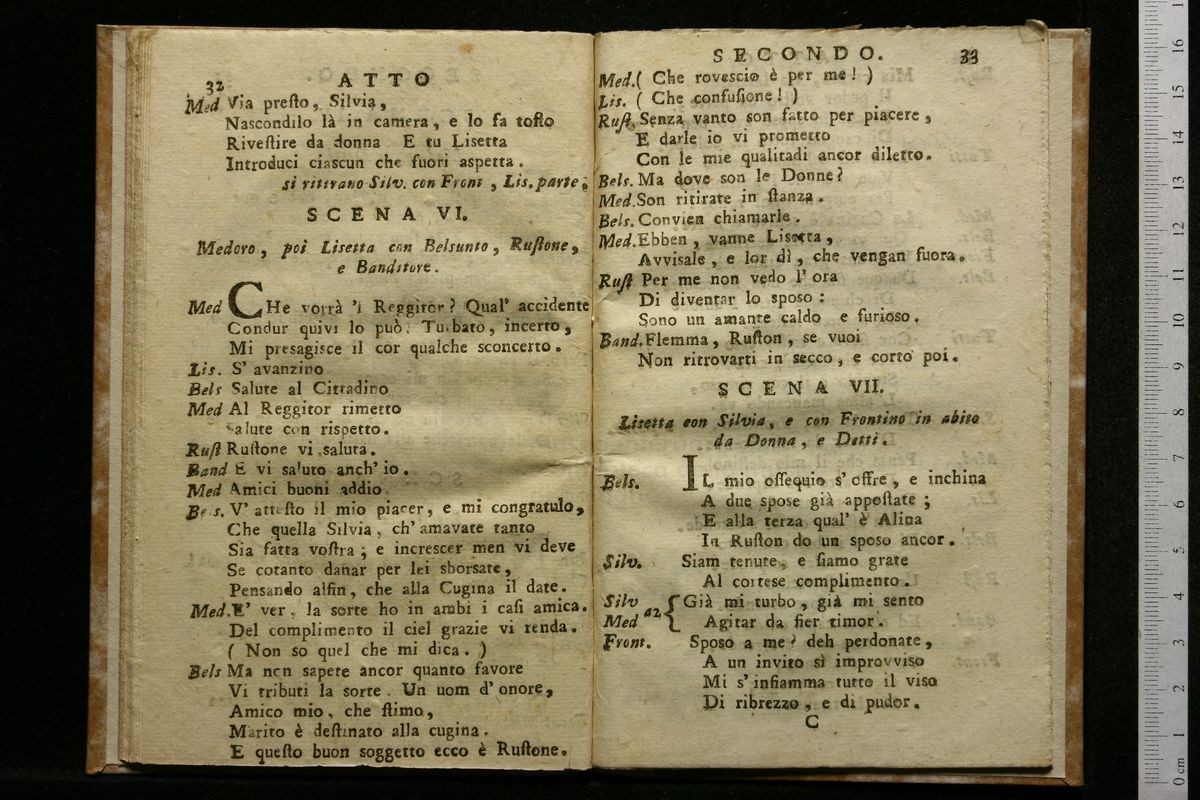 32 ATTO
Med Via preſto, Silvia,
Naſcondilo là in camera, e lo fa toſto
Riveſtire da donna E tu Liſetta
Introduci ciaſcun che fuori aſpetta.
si ritirano Silv. con Front, Lis. parte;
SCENA VI.
Medoro, poi Lisetta con Belsunto, Ruſtone,
e Banditore.
Med CHe vorrà 'l Reggitor? Qual' accidente
Condur quivi lo può. Turbato, incerto,
Mi presagisce il cor qualche sconcerto.
Lis. S' avanzino
Bels Salute al Cittadino
Med Al Reggitor rimetto
Salute con rispetto.
Ruſt Ruſtone vi saluta.
Band E vi saluto anch' io.
Med Amici buoni addio
Bels. V' atteſto il mio piacer, e mi congratulo,
Che quella Silvia, ch' amavate tanto
Sia fatta voſtra; e increscer men vi deve
Se cotanto danar per lei sborsate,
Pensando alfin, che alla Cugina il date.
Med. E' ver. la sorte ho in ambi i caſi amica.
Del complimento il ciel grazie vi renda.
( Non so quel che mi dica. )
Bels Ma non sapete ancor quanto favore
Vi tributi la sorte. Un uom d' onore,
Amico mio, che ſtimo,
Marito è deſtinato alla cugina.
E queſto buon soggetto ecco è Ruſtone.
SECONDO. 33
Med. ( Che rovescio è per me! )
Lis. ( Che confuſione! )
Ruſt. Senza vanto son fatto per piacere,
E darle io vi prometto
Con le mie qualitadi ancor diletto.
Bels. Ma dove son le Donne?
Med. Son ritirate in ſtanza.
Bels. Convien chiamarle.
Med. Ebben, vanne Lisetta,
Avvisale, e lor dì, che vengan fuora.
Ruſt Per me non vedo l' ora
Di diventar lo sposo:
Sono un amante caldo e furioso.
Band. Flemma, Ruſton, se vuoi
Non ritrovarti in secco, e corto poi.
SCENA VII.
Lisetta con Silvia, e con Frontino in abito
da Donna, e Detti.
Bels. IL mio oſſequio s' offre, e inchina
A due spose già appoſtate;
E alla terza qual' è Alina
In Ruſton do un sposo ancor.
Silv. Siam tenute, e ſiamo grate
Al cortese complimento.
Silv Già mi turbo, già mi sento
Med a2 { Agitar da fier timor.
Front. Sposo a me? deh perdonate,
A un invito sì improvviso
Mi s' infiamma tutto il viso
Di ribrezzo, e di pudor.
C